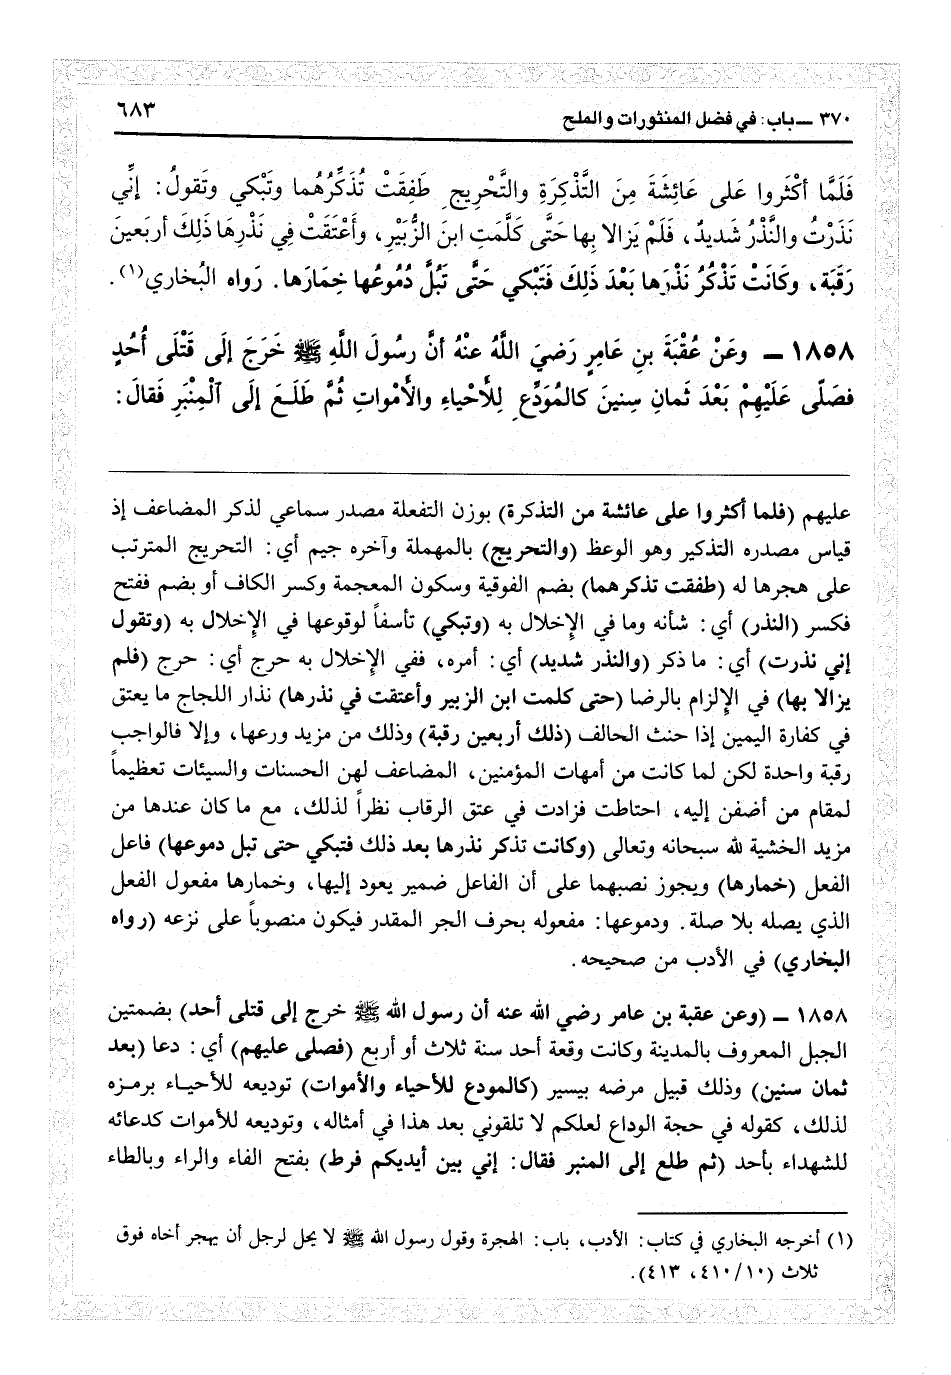 ٣٧٠ ــ باب: في فضل المنثورات والملح
٦٨٣
فَلَمَّا أكْثَروا عَلى عَائِشَةَ مِنَ التَّذْكِرَةِ والتَّحْرِيجِ طَفِقَتْ تُذَكِّرُهُما وتَبْكي وتَقولُ: إنِّي
نَذَرْتُ والنَّذْرُ شَديدٌ، فَلَمْ يَزالا بِها حَتَّى كَلَّمَتِ ابنَ الزُّبَيْرِ، وأَعْتَقَتْ فِي نَذْرِهَا ذَلِكَ أربَعينَ
رَقَبَة، وكَانَتْ تَذْكُرُ نَذْرَها بَعْدَ ذَلِكَ فَتَبْكي حَتَّى تَبُلَّ دُمُوعُها خِمَارَها. رَواه البُخاري(١).
١٨٥٨ ــ وعَنْ عُقْبَةَ بنِ عَامِرٍ رَضيَ اللَّهُ عنْهُ أنَّ رسُولَ اللَّهِ ﷺ خَرَجَ إلَى قَتْلَى أُحُدٍ
فصَلَّى عَلَيْهِمْ بَعْدَ ثَمانِ سِنينَ كالمُوَدِّعِ لِلأَحْياءِ والأَمْواتِ ثُمَّ طَلَعَ إلَى الْمِنْبَرِ فَقالَ:
عليهم (فلما أكثروا على عائشة من التذكرة) بوزن التفعلة مصدر سماعي لذكر المضاعف إذ
قياس مصدره التذكير وهو الوعظ (والتحريج) بالمهملة وآخره جيم أي: التحريج المترتب
على هجرها له (طفقت تذكرهما) بضم الفوقية وسكون المعجمة وكسر الكاف أو بضم ففتح
فكسر (النذر) أي: شأنه وما في الإخلال به (وتبكي) تأسفاً لوقوعها في الإخلال به (وتقول
إني نذرت) أي: ما ذكر (والنذر شديد) أي: أمره، ففي الإخلال به حرج أي: حرج (فلم
يزالا بها) في الإلزام بالرضا (حتى كلمت ابن الزبير وأعتقت في نذرها) نذار اللجاج ما يعتق
في كفارة اليمين إذا حنث الحالف (ذلك أربعين رقبة) وذلك من مزيد ورعها، وإلا فالواجب
رقبة واحدة لكن لما كانت من أمهات المؤمنين، المضاعف لهن الحسنات والسيئات تعظيماً
لمقام من أضفن إليه، احتاطت فزادت في عتق الرقاب نظراً لذلك، مع ما كان عندها من
مزيد الخشية لله سبحانه وتعالى (وكانت تذكر نذرها بعد ذلك فتبكي حتى تبل دموعها) فاعل
الفعل (خمارها) ويجوز نصبهما على أن الفاعل ضمير يعود إليها، وخمارها مفعول الفعل
الذي يصله بلا صلة. ودموعها: مفعوله بحرف الجر المقدر فيكون منصوباً على نزعه (رواه
البخاري) في الأدب من صحيحه.
١٨٥٨ ــ (وعن عقبة بن عامر رضي الله عنه أن رسول الله ﷺ خرج إلى قتلى أحد) بضمتين
الجبل المعروف بالمدينة وكانت وقعة أحد سنة ثلاث أو أربع (فصلى عليهم) أي: دعا (بعد
ثمان سنين) وذلك قبيل مرضه بيسير (كالمودع للأحياء والأموات) توديعه للأحياء برمزه
لذلك، كقوله في حجة الوداع لعلكم لا تلقوني بعد هذا في أمثاله، وتوديعه للأموات كدعائه
للشهداء بأحد (ثم طلع إلى المنبر فقال: إني بين أيديكم فرط) بفتح الفاء والراء وبالطاء
(١) أخرجه البخاري في كتاب: الأدب، باب: الهجرة وقول رسول الله ﷺ لا يحل لرجل أن يهجر أخاه فوق
ثلاث (٤١٠/١٠، ٤١٣).